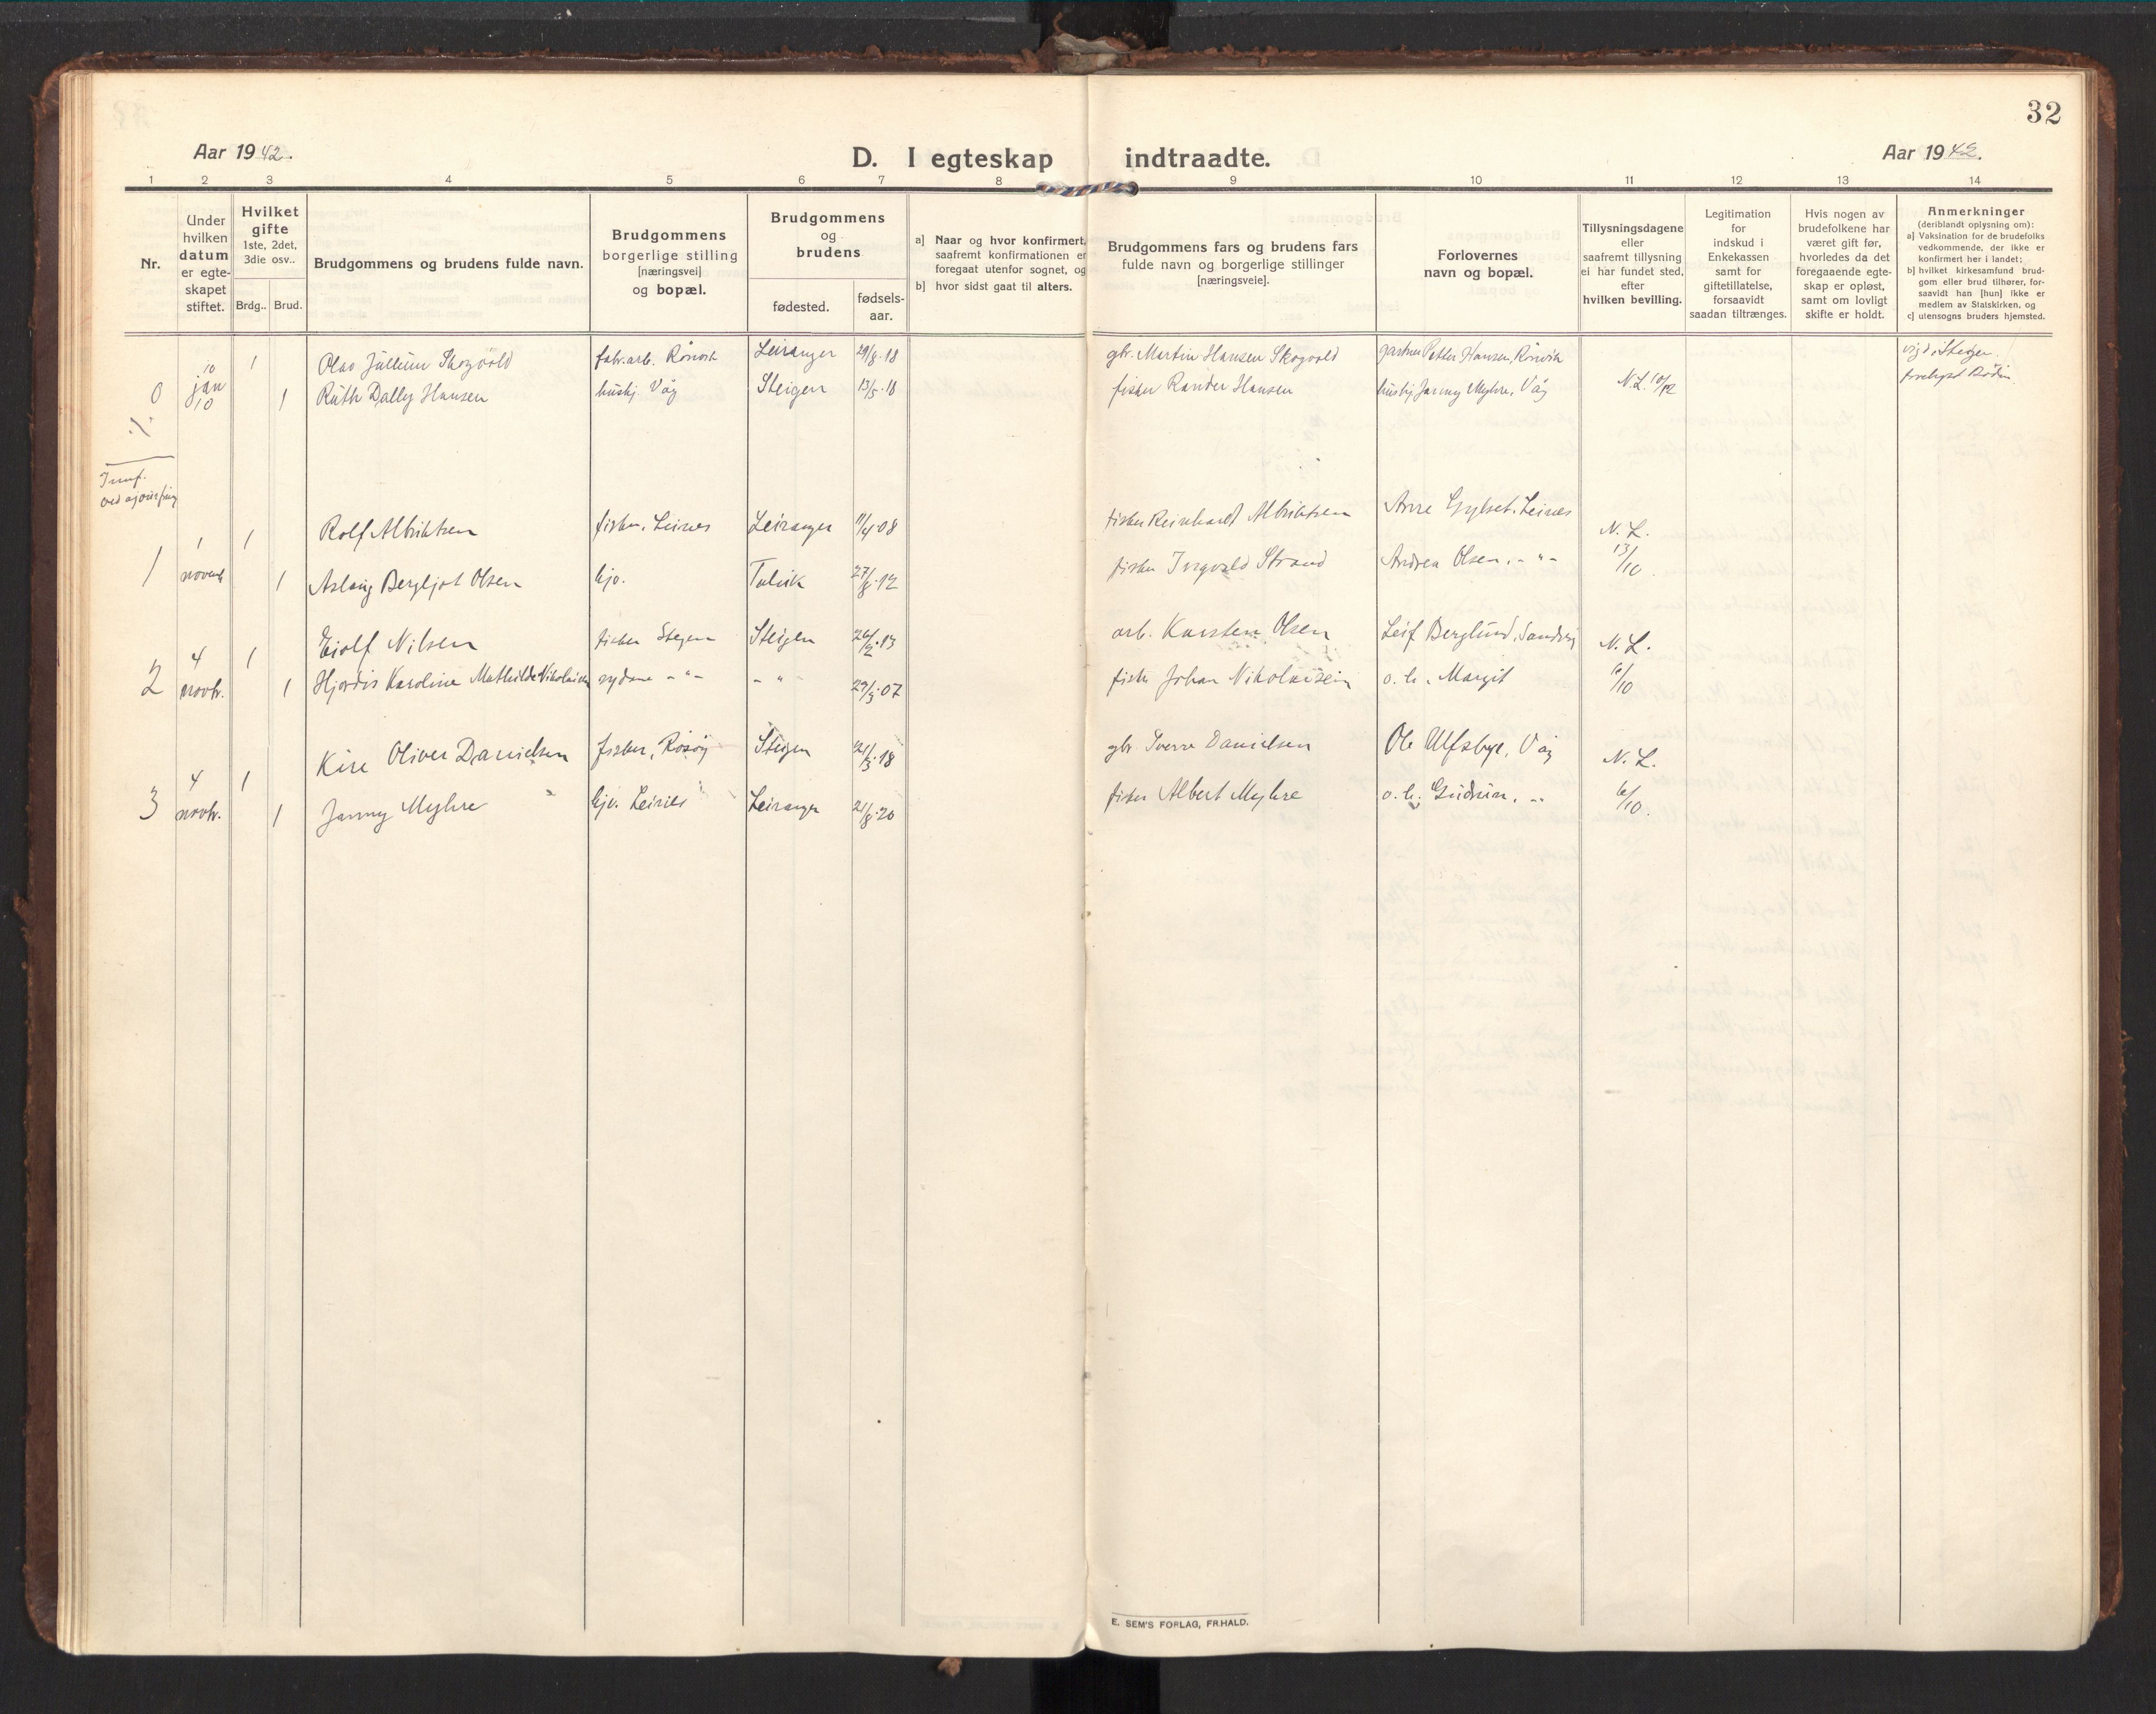 32
Aar 1942.
D. I egteskap indtraadte.
Aar 1942.
1 2 3 4 5 6 7 8 9 10 11 12 13 14
Nr.
Under
hvilken
datum
er egte-
skapet
stiftet.
Hvilket
gifte
1ste, 2det,
3die osv..
Brdg.. Brud.
Brudgommens og brudens fulde navn.
Brudgommens
borgerlige stilling
[næringsvei]
og bopæl.
Brudgommens
og
brudens
fødested.
fødsels-
aar.
a] Naar og hvor konfirmert,
saafremt konfirmationen er
foregaat utenfor sognet, og
b] hvor sidst gaat til alters.
Brudgommens fars og brudens fars
fulde navn og borgerlige stillinger
[næringsveie].
Forlovernes
navn og bopæl.
Tillysningsdagene
eller
saafremt tillysning
ei har fundet sted,
efter
hvilken bevilling.
Legitimation
for
indskud i
Enkekassen
samt for
giftetillatelse,
forsaavidt
saadan tiltrænges.
Hvis nogen av
brudefolkene har
været gift før,
hvorledes da det
foregaaende egte-
skap er opløst,
samt om lovligt
skifte er holdt.
Anmerkninger
(deriblandt oplysning om):
a] Vaksination for de brudefolks
vedkommende, der ikke er
konfirmert her i landet;
b] hvilket kirkesamfund brud-
gom eller brud tilhører, for-
saavidt han [hun] ikke er
medlem av Statskirken, og
c] utensogns bruders hjemsted.
10 1 Olav Jullum Skogvold fabr.arb. Rønvik Leiranger 29/8.18 gbr. Martin Hansen Skogvold gartner Petter Hansen, Rønvik vigd i Steigen.
0 jan 10 1 Ruth Dally Hansen hushj. Våg Steigen 13/5.18 fisker Rander Hansen hushj. Janny Myhre, Våg N.L. 10/12
·/.
Innf.
1 1 Rolf Albriktsen fisker, Leines Leiranger 11/4 08 fisker Reinhardt Albriktsen Arne Gylset, Leines N. L.
1 novemb 1 Aslaug Bergljot Olsen hjv. Talvik 27/8.12 fisker Ingvald Strand Andrea Olsen, - " - 13/10.
4 1 Eiolf Nilsen fisker Steigen Steigen 26/2.13 arb. Karsten Olsen Leif Berglund, N. L.
2 novbr. 1 Hjørdis Karoline Mathilde Nikolaisen sydame - " - - " - 29/3.07 fisker Johan Nikolaisen o. h. Margit 6/10
4 1 Kåre Oliver Danielsen fisker, Røsøy Steigen 21/3.18 gbr. Sverre Danielsen Ole Ulfsbye, Våg N. L.
3 novbr. 1 Janny Myhre hjv. Leines Leiranger 21/8.20 fisker Albert Myhre o. h. Gudrun, - " - 6/10.
E. SEM'S FORLAG, FR.HALD.